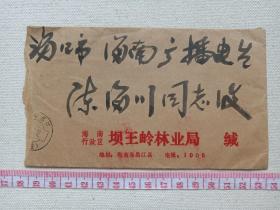 海口市 海南广播电台
陈海川同志收
海南
行政区
坝王岭林业局 缄
地址：海南省昌江县 电话：1006